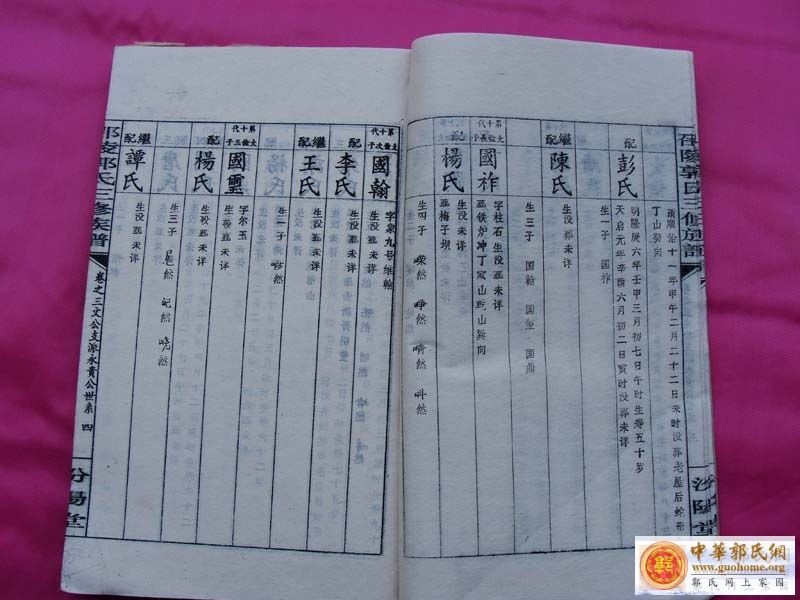 邵陵郭氏三修族譜
清顺治十一年甲午二月二十二日未时没葬老屋后蛇形
丁山癸向
配
彭氏
明隆庚六年壬申三月初七日午时生寿五十岁
天启元年辛酉六月初二日寅时没葬未详
生一子 国祚
继配
陳氏
生没葬未详
生三子 国翰 国玺 国鼎
第十代
大倫長子
國祚
字柱石生没葬未详
葬铁炉冲丁家山乾山巽向
配
楊氏
生没葬未详
葬梅子坝
生四子 然 峥然 然 然
第十代
大倫次子
國翰
字泉九号维翰
生没葬未详
配
李氏
生没葬未详
继配
王氏
生没葬未详
生一子 然
第十代
大倫三子
國璽
字尔玉
生没葬未详
配
楊氏
生没葬未详
生三子 然 然 然
继配
譚氏
生没葬未详
邵陵郭氏三修族譜
卷之三文公支派永貴公世系 四
汾陽堂
汾陽堂
中華郭氏網
www.guohome.org
郭氏网上家园